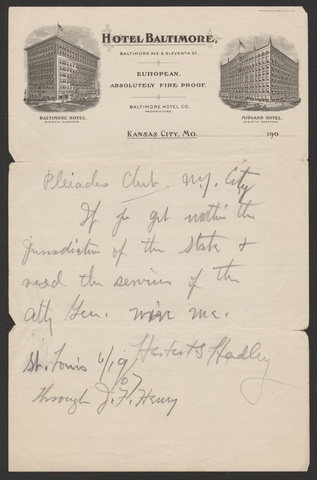 HOTEL BALTIMORE,
BALTIMORE AVE & ELEVENTH ST.
EUROPEAN.
ABSOLUTELY FIRE PROOF.
BALTIMORE HOTEL CO.
PROPRIETORS.
BALTIMORE HOTEL.
MIDLAND HOTEL.
KANSAS CITY, MO. 190
Pleiades Club. N.Y. City
If you get within the
jurisdiction of the State &
need the services of the
atty Gen. wire me.
Herbert S Hadley
St. Louis 6/19/07
through J. F. Henry